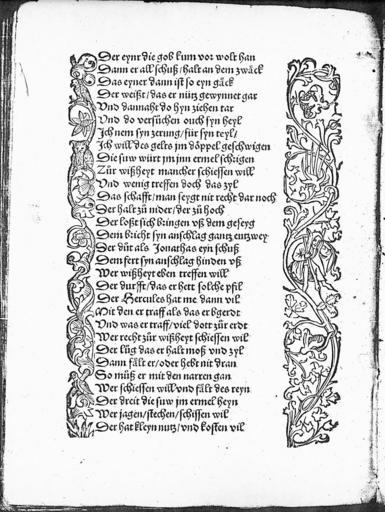 Der eynr die gob kum vor wolt han
Dann er all schuß/halt an dem zwäck
Das eyner dann ist so eyn gäck
Der weißt/das er nütz gewynnet gar
Vnd dannaht do hyn ziehen tar
Vnd do versůchen ouch syn heyl
Jch nem syn zerung/für syn teyl/
Jch will des gelts jm döppel geschwigen
Die suw würt jm jnn ermel schrigen
Zůr wißheyt mancher schiessen will
Vnd wenig treffen doch das zyl
Das schafft/man seygt nit recht dar noch
Der halt zů nider/der zů hoch
Der loßt sich bringen vß dem geseyg
Dem bricht syn anschlag gantz entzwey
Der důt als Jonathas eyn schuß
Dem fert syn anschlag hinden vß
Wer wißheyt eben treffen will
Der durfft/das er hett solche pfil
Der Hercules hat me dann vil
Mit den er traff als das er begerdt
Vnd was er traff/viel dott zůr erdt
Wer recht zůr wißheyt schiessen wil
Der lůg das er halt moß vnd zyl
Dann fält er/oder hebt nit dran
So můß er mit den narren gan
Wer schiessen will vnd fält des reyn
Der dreit die suw jm ermel heyn
Wer jagen/stechen/schissen wil
Der hat kleyn nutz/vnd kosten vil